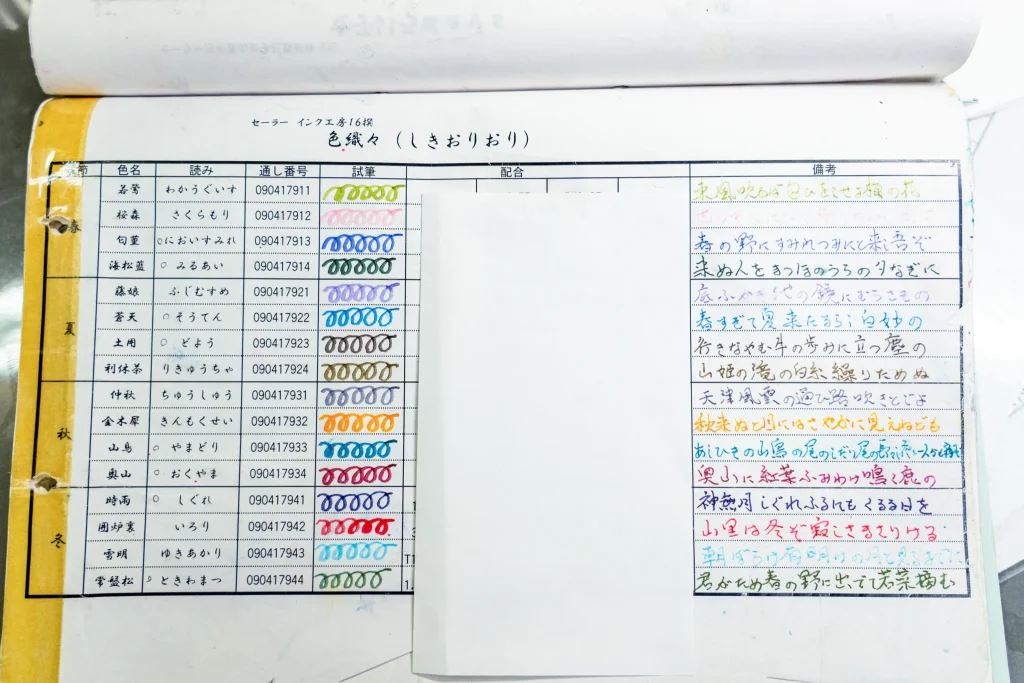 セーラー インク工房16撰
色織々（しきおりおり）
節 色名 読み 通し番号 試筆 配合 備考
春
若鶯 わかうぐいす 090417911 東風吹かば匂ひをこせよ梅の花
桜森 さくらもり 090417912
匂菫 においすみれ 090417913 春の野にすみれつみにと来し吾ぞ
海松藍 みるあい 090417914 来ぬ人をまつほのうらの夕なぎに
夏
藤娘 ふじむすめ 090417921
蒼天 そうてん 090417922 春すぎて夏来たるらし白妙の
土用 どよう 090417923 行きなやむ牛の歩みに立つ塵の
利休茶 りきゅうちゃ 090417924 山姫の滝の白糸繰りためぬ
秋
仲秋 ちゅうしゅう 090417931 天津風雲の通ひ路吹きとじよ
金木犀 きんもくせい 090417932 秋来ぬと目にはさやかに見えねども
山鳥 やまどり 090417933 あしひきの山鳥の尾のしだり尾の
奥山 おくやま 090417934 奥山に紅葉ふみわけ鳴く鹿の
冬
時雨 しぐれ 090417941 神無月しぐれふるにも くるる日を
囲炉裏 いろり 090417942 山里は冬ぞ寂しさまさりける
雪明 ゆきあかり 090417943
常盤松 ときわまつ 090417944 君がため春の野に出でて若菜摘む